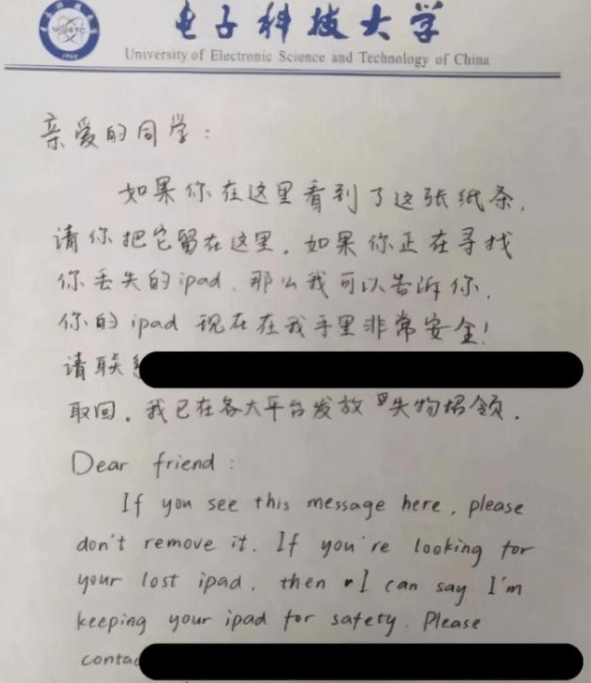 电子科技大学
University of Electronic Science and Technology of China
亲爱的同学：
如果你在这里看到了这张纸条，
请你把它留在这里。如果你正在寻找
你丢失的ipad，那么我可以告诉你，
你的ipad 现在在我手里非常安全！
请联
取回。我已在各大平台发放 失物招领。
Dear friend：
If you see this message here, please
don't remove it. If you're looking for
your lost ipad, then I can say I'm
keeping your ipad for safety. Please